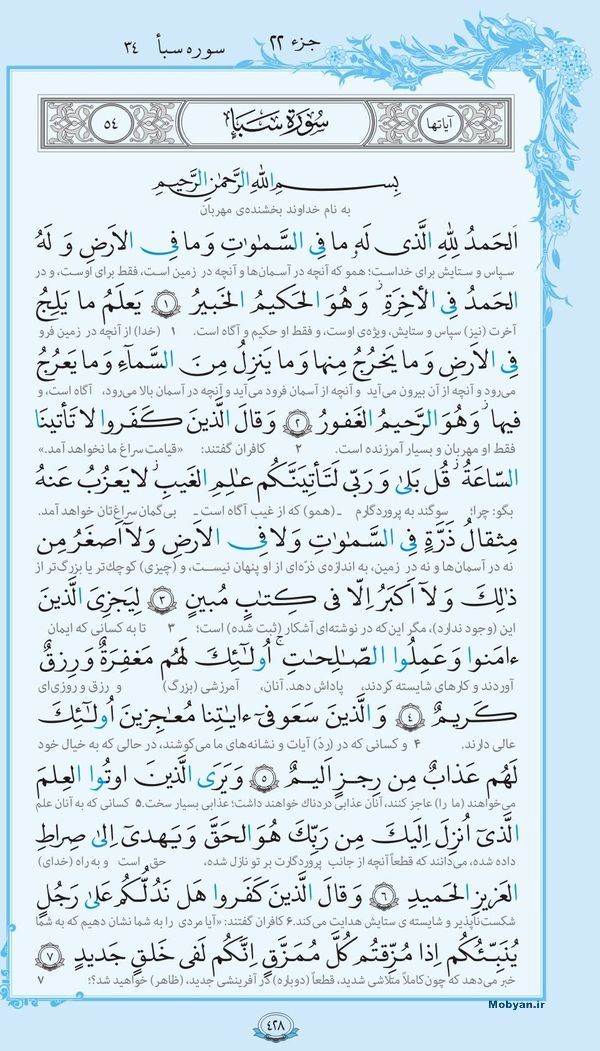 جزء ۲۲ سوره سبأ ۳۴
آیاتها سُورَةُ سَبَإٍ ۵۴
بِسمِ اللهِ الرَّحمٰنِ الرَّحيمِ
به نام خداوند بخشنده‌ی مهربان
اَلحَمدُ لِلّٰهِ الَّذى لَهُ ما فِى السَّمٰوٰتِ وَ ما فِى الاَرضِ وَ لَهُ
سپاس و ستایش برای خداست؛ همو که آنچه در آسمان‌ها و آنچه در زمین است، فقط برای اوست، و در
الحَمدُ فِى الأٰخِرَةِ ۚ وَ هُوَ الحَكيمُ الخَبيرُ ﴿۱﴾ يَعلَمُ ما يَلِجُ
آخرت (نیز) سپاس و ستایش، ویژه‌ی اوست، و فقط او حکیم و آگاه است. ۱ (خدا) از آنچه در زمین فرو
فِى الاَرضِ وَ ما يَخرُجُ مِنها وَ ما يَنزِلُ مِنَ السَّمآءِ وَ ما يَعرُجُ
می‌رود و آنچه از آن بیرون می‌آید و آنچه از آسمان فرود می‌آید و آنچه در آسمان بالا می‌رود، آگاه است، و
فيها ۚ وَ هُوَ الرَّحيمُ الغَفورُ ﴿۲﴾ وَ قالَ الَّذينَ كَفَروا لا تَأتينَا
فقط او مهربان و بسیار آمرزنده است. ۲ کافران گفتند: «قیامت سراغ ما نخواهد آمد.»
السّاعَةُ ۖ قُل بَلىٰ وَ رَبّى لَتَأتِيَنَّكُم عالِمِ الغَيبِ ۖ لا يَعزُبُ عَنهُ
بگو: چرا؛ سوگند به پروردگارم ـ (همو) که از غیب آگاه است ـ بی‌گمان سراغ‌تان خواهد آمد.
مِثقالُ ذَرَّةٍ فِى السَّمٰوٰتِ وَ لا فِى الاَرضِ وَ لآ اَصغَرُ مِن
نه در آسمان‌ها و نه در زمین، به اندازه‌ی ذرّه‌ای از او پنهان نیست، و (چیزی) کوچک‌تر یا بزرگ‌تر از
ذٰلِكَ وَ لآ اَكبَرُ اِلّا فى كِتٰبٍ مُبينٍ ﴿۳﴾ لِيَجزِىَ الَّذينَ
این (وجود ندارد)، مگر این‌که در نوشته‌ای آشکار (ثبت شده) است؛ ۳ تا به کسانی که ایمان
ءامَنوا وَ عَمِلُوا الصّالِحٰتِ ۚ اُولٰئِكَ لَهُم مَغفِرَةٌ وَ رِزقٌ
آوردند و کارهای شایسته کردند، پاداش دهد. آنان، آمرزشی (بزرگ) و رزق و روزی‌ای
كَريمٌ ﴿۴﴾ وَ الَّذينَ سَعَو فىٓ ءاياتِنا مُعاجِزينَ اُولٰئِكَ
عالی دارند. ۴ و کسانی که در (ردّ) آیات و نشانه‌های ما می‌کوشند، در حالی که به خیال خود
لَهُم عَذابٌ مِن رِجزٍ اَليمٌ ﴿۵﴾ وَ يَرَى الَّذينَ اوتُوا العِلمَ
می‌خواهند (ما را) عاجز کنند، آنان عذابی دردناک خواهند داشت؛ عذابی بسیار سخت. ۵ کسانی که به آنان علم
الَّذىٓ اُنزِلَ اِلَيكَ مِن رَبِّكَ هُوَ الحَقَّ وَ يَهدىٓ اِلىٰ صِراطِ
داده شده، می‌دانند که قطعاً آنچه از جانب پروردگارت بر تو نازل شده، حق است و به راه (خدای)
العَزيزِ الحَميدِ ﴿۶﴾ وَ قالَ الَّذينَ كَفَروا هَل نَدُلُّكُم عَلىٰ رَجُلٍ
شکست‌ناپذیر و شایسته‌ی ستایش هدایت می‌کند. ۶ کافران گفتند: «آیا مردی را به شما نشان دهیم که به شما
يُنَبِّئُكُم اِذا مُزِّقتُم كُلَّ مُمَزَّقٍ اِنَّكُم لَفى خَلقٍ جَديدٍ ﴿۷﴾
خبر می‌دهد که چون کاملاً متلاشی شدید، قطعاً (دوباره) در آفرینشی جدید، (ظاهر) خواهید شد؟؛ ۷
Mobyan.ir
۴۲۸